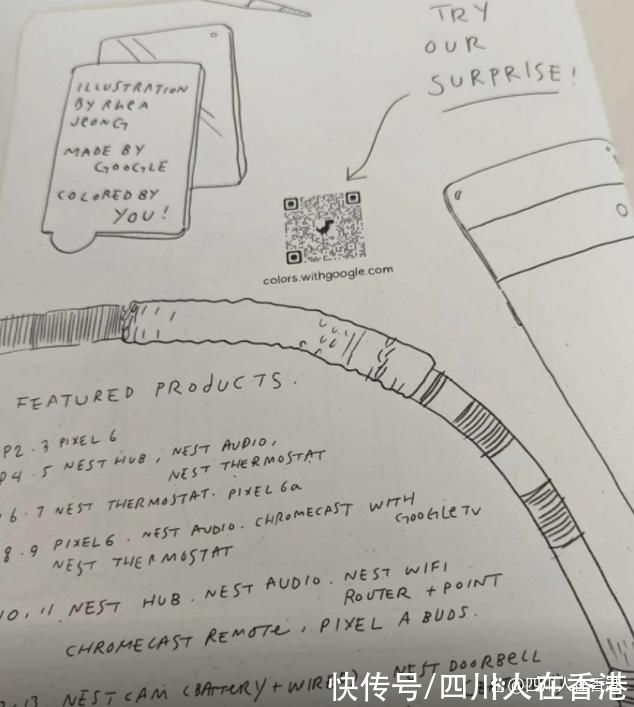 TRY
OUR
SURPRISE!
ILLUSTRATION
BY RHEA
JEONG
MADE BY
GOOGLE
COLORED BY
YOU!
colors.withgoogle.com
FEATURED PRODUCTS.
P2.3 PIXEL 6
P4.5 NEST HUB, NEST AUDIO,
NEST THERMOSTAT
6.7 NEST THERMOSTAT. PIXEL 6a
8.9 PIXEL 6. NEST AUDIO. CHROMECAST WITH
GOOGLE TV
NEST THERMOSTAT
10, 11. NEST HUB. NEST AUDIO. NEST WIFI
ROUTER + POINT
CHROMECAST REMOTE, PIXEL A BUDS.
13. NEST CAM (BATTERY + WIRED) NEST DOORBELL
快传号/四川人在香港